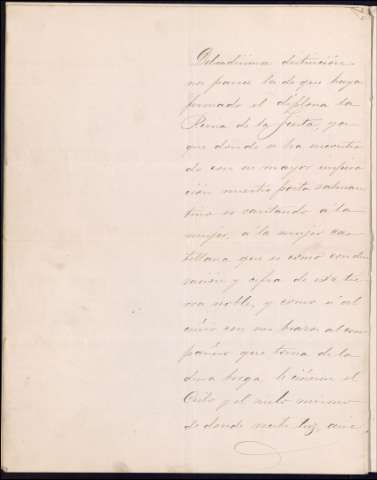 Delicadísima distinción
me parece la de que haya
firmado el diploma la
Reina de la fiesta, ya
que donde se ha mostra
do con su mayor inspira
ción nuestro poeta salman
tino es cantando á la
mujer, á la mujer cas
tellana que es como conden
sación y cifra de esta tie
rra noble, y como si al
ceñir con sus brazos al com
pañero que torna de la
dura brega le ciñesen el
cielo y el suelo mismo
de donde recibe luz, aire,